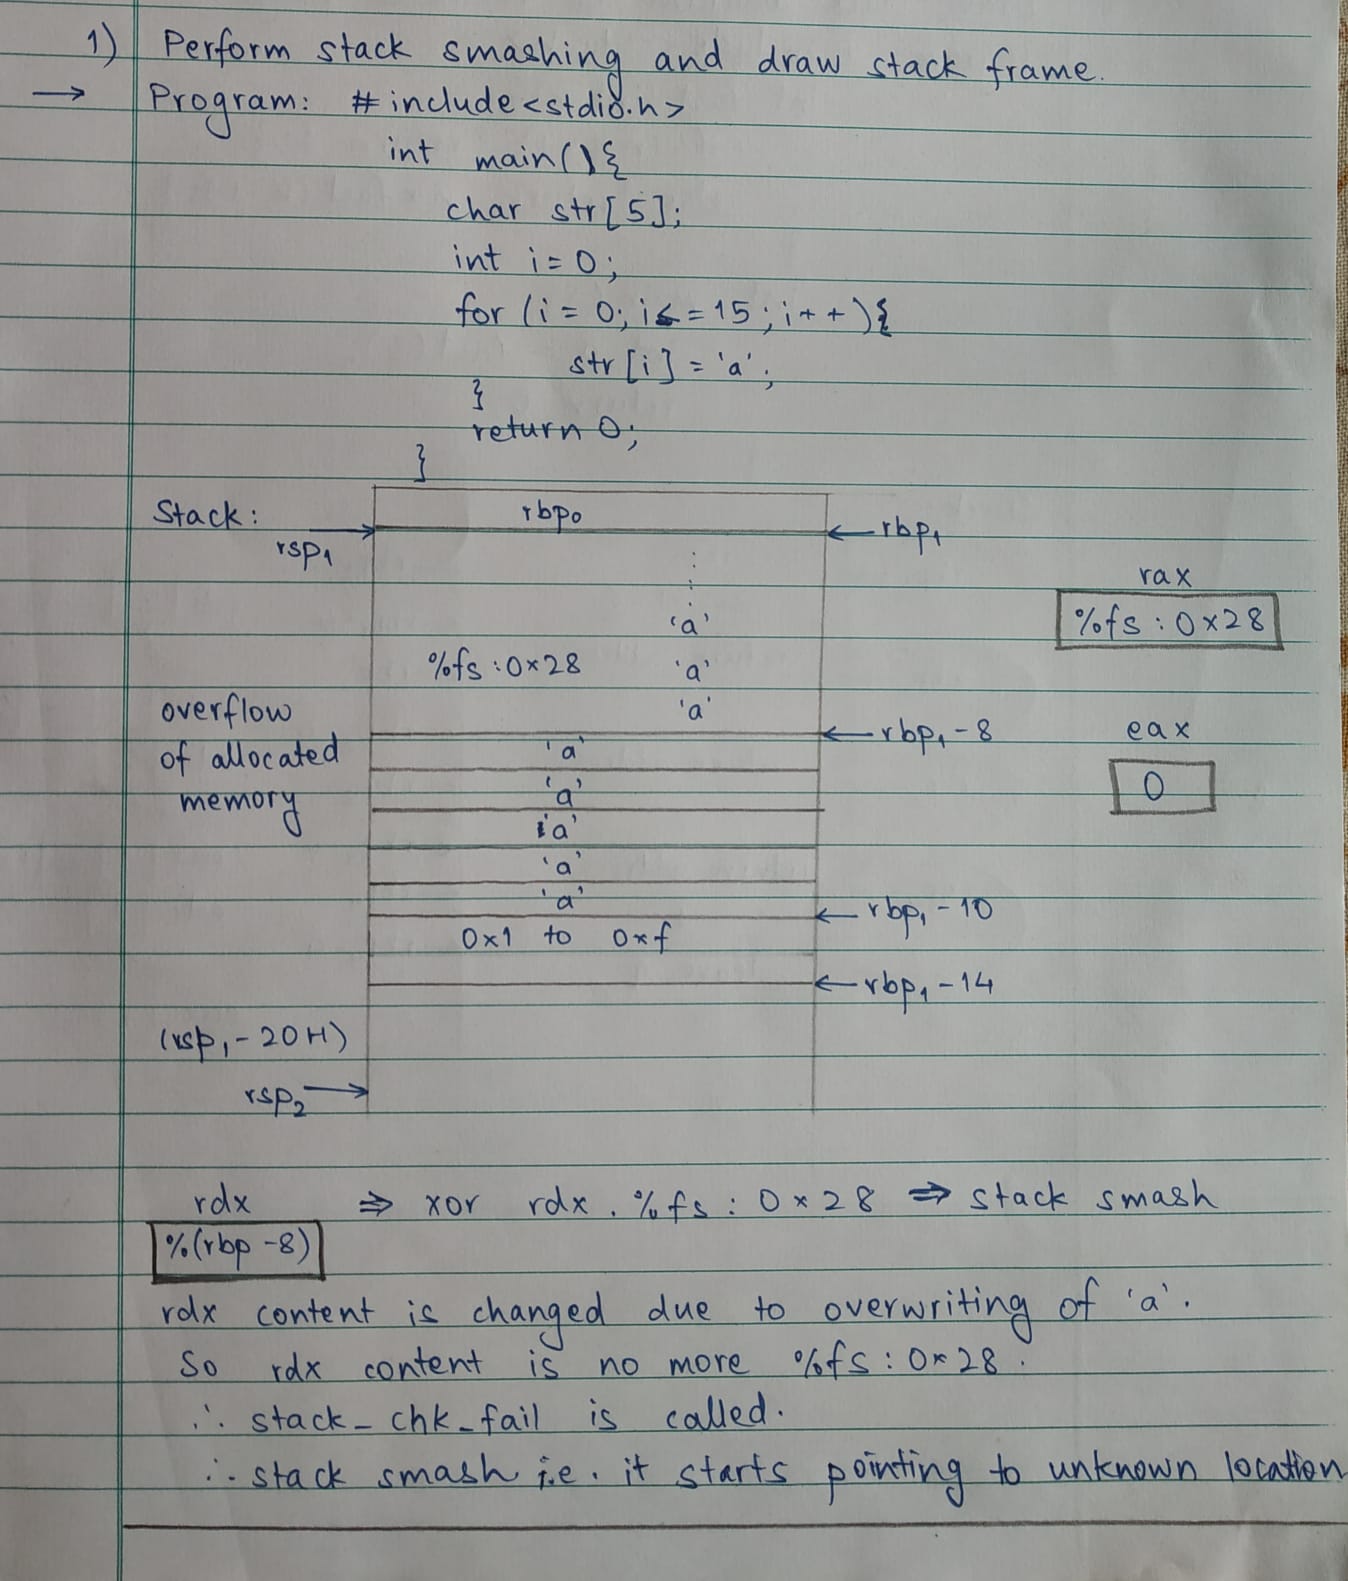 1) Perform stack smashing and draw stack frame.
→ Program: #include<stdio.h>
int main(){
char str[5];
int i=0;
for (i=0; i<=15; i++){
str[i] = 'a';
}
return 0;
}
Stack:
rbp₀
rsp₁ →
← rbp₁
rax
%fs:0x28
'a'
%fs:0x28 'a'
'a'
overflow
of allocated
memory
← rbp₁-8
eax
0
'a'
'a'
'a'
'a'
'a'
← rbp₁-10
0x1 to 0xf
← rbp₁-14
(rsp₁-20H)
rsp₂ →
rdx ⇒ xor rdx. %fs:0x28 ⇒ stack smash
%(rbp-8)
rdx content is changed due to overwriting of 'a'.
So rdx content is no more %fs:0x28.
∴ stack_chk_fail is called.
∴ stack smash i.e. it starts pointing to unknown location